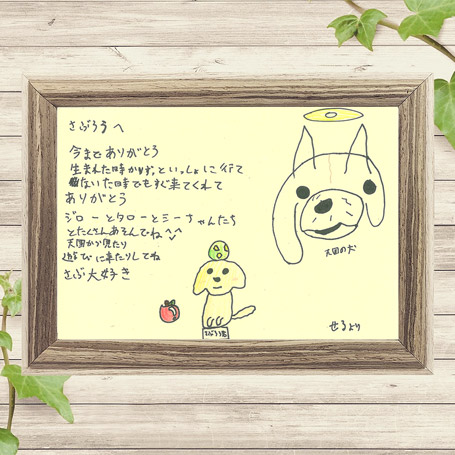 さぶろうへ
今までありがとう
生まれた時からずっといっしょに行て
ないた時でもすぐ来てくれて
ありがとう
ジローとタローとミーちゃんたち
とたくさんあそんでね^^
天国から見たり
遊びに来たりしてね
さぶ大好き
天国の犬
せるより